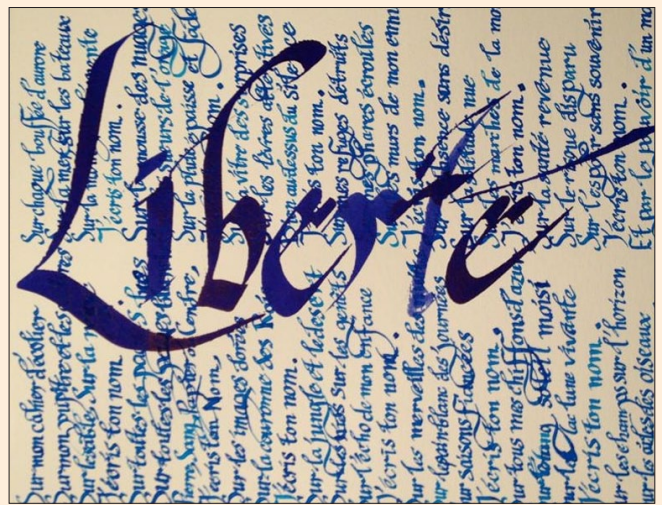 Liberté
Sur mon cahier d'écolier
Sur mon pupitre et les
Sur le sable Sur la
J'écris ton nom.
Sur toutes les pages lues
Sur toutes les
Sang, Papier ou Cendre,
J'écris ton Nom,
Sur les images dorées
Sur la couronne des
J'écris ton nom.
Sur la jungle et le désert
Sur les nids Sur les genêts
Sur l'écho de mon enfance
J'écris ton nom.
Sur les merveilles des
Sur le pain blanc des Journées
saisons fiancées
J'écris ton nom.
Sur tous mes chiffons d'azur
soleil moisi
Sur le lune vivante
J'écris ton nom.
Sur les champs sur l'horizon
les ailes des oiseaux
Sur chaque bouffée d'aurore
la mer sur les bateaux
Sur la
J'écris ton nom.
Sur la mousse des nuages
de l'orage
Sur la pluie épaisse et fade
nom.
les livres des
au dessus du
ton nom.
Sur mes refuges détruits
écroulés
murs de mon ennui
ton nom.
absence sans désir
nue
marches de la mort
J'écris ton nom.
Sur la santé revenue
Sur le risque disparu
Sur l'espoir sans souvenir
J'écris ton nom.
Et par le pouvoir d'un mot